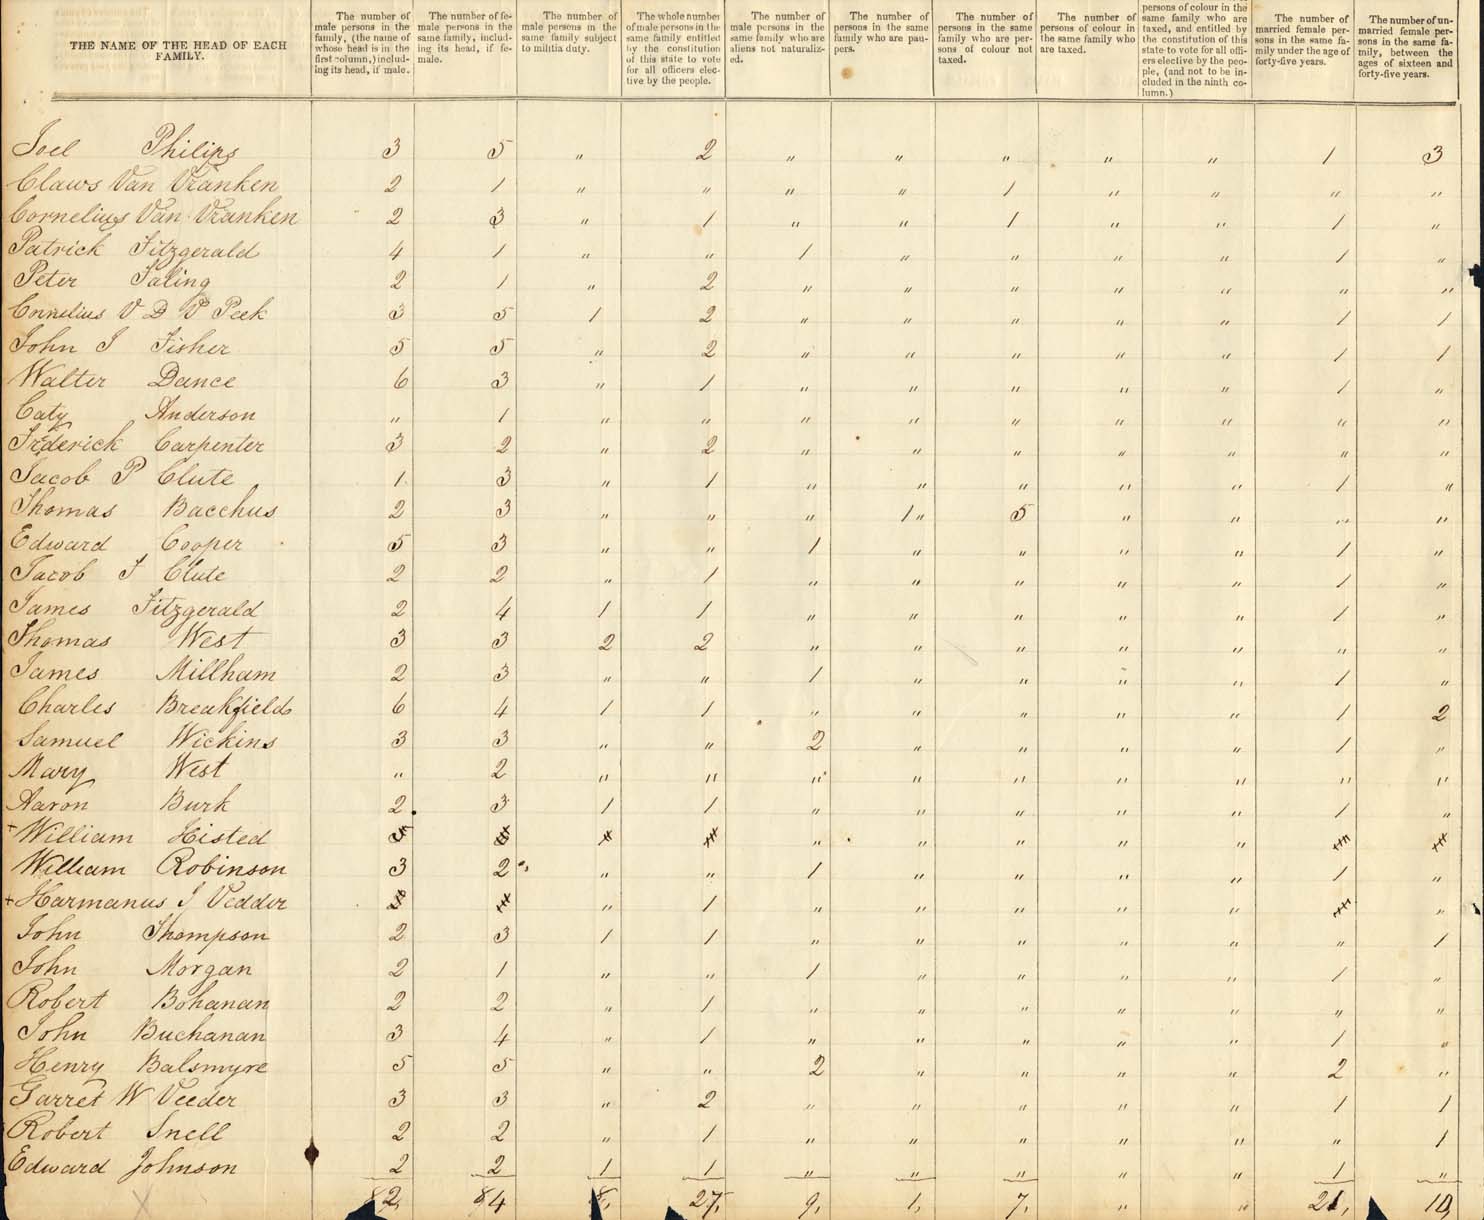 THE NAME OF THE HEAD OF EACH FAMILY. | The number of male persons in the family, (the name of whose head is in the first column,) including its head, if male. | The number of female persons in the same family, including its head, if female. | The number of male persons in the same family subject to militia duty. | The whole number of male persons in the same family entitled by the constitution of this state to vote for all officers elective by the people. | The number of male persons in the same family who are aliens not naturalized. | The number of persons in the same family who are paupers. | The number of persons in the same family who are persons of colour not taxed. | The number of persons of colour in the same family who are taxed. | persons of colour in the same family who are taxed, and entitled by the constitution of this state to vote for all officers elective by the people, (and not to be included in the ninth column.) | The number of married female persons in the same family under the age of forty-five years. | The number of unmarried female persons in the same family, between the ages of sixteen and forty-five years.
Joel Philips 3 5 " 2 " " " " " 1 3
Claws Van Vranken 2 1 " " " " 1 " " " "
Cornelius Van Vranken 2 3 " 1 " " 1 " " 1 "
Patrick Fitzgerald 4 1 " " 1 " " " " 1 "
Peter Faling 2 1 " 2 " " " " " " "
Cornelius V D V Peek 3 5 1 2 " " " " " 1 1
John J Fisher 5 5 " 2 " " " " " 1 1
Walter Dance 6 3 " 1 " " " " " 1 "
Caty Anderson " 1 " " " " " " " " "
Frderick Carpenter 3 2 " 2 " " " " " " "
Jacob P Clute 1 3 " 1 " " " " " 1 "
Thomas Bacchus 2 3 " " " 1 " 5 " " " "
Edward Cooper 5 3 " " 1 " " " " 1 "
Jacob J Clute 2 2 " 1 " " " " " 1 "
James Fitzgerald 2 4 1 1 " " " " " 1 "
Thomas West 3 3 2 2 " " " " " " "
James Millham 2 3 " " 1 " " " " 1 "
Charles Breakfield 6 4 1 1 " " " " " 1 2
Samuel Wickins 3 3 " " 2 " " " " 1 "
Mary West " 2 " " " " " " " " "
Aaron Burk 2 3 1 1 " " " " " 1 "
+ William Histed " " " " "
William Robinson 3 2 " " 1 " " " " 1 "
+ Harmanus J Vedder " 1 " " " " " "
John Thompson 2 3 1 1 " " " " " " 1
John Morgan 2 1 " " 1 " " " " 1 "
Robert Bohanan 2 2 " 1 " " " " " " "
John Buchanan 3 4 " 1 " " " " " 1 "
Henry Balsmyre 5 5 " " 2 " " " " 2 "
Garret W Veeder 3 3 " 2 " " " " " 1 1
Robert Snell 2 2 " 1 " " " " " " 1
Edward Johnson 2 2 1 1 " " " " " 1 "
82, 84 8, 27, 9, 1, 7, " " 21, 10,